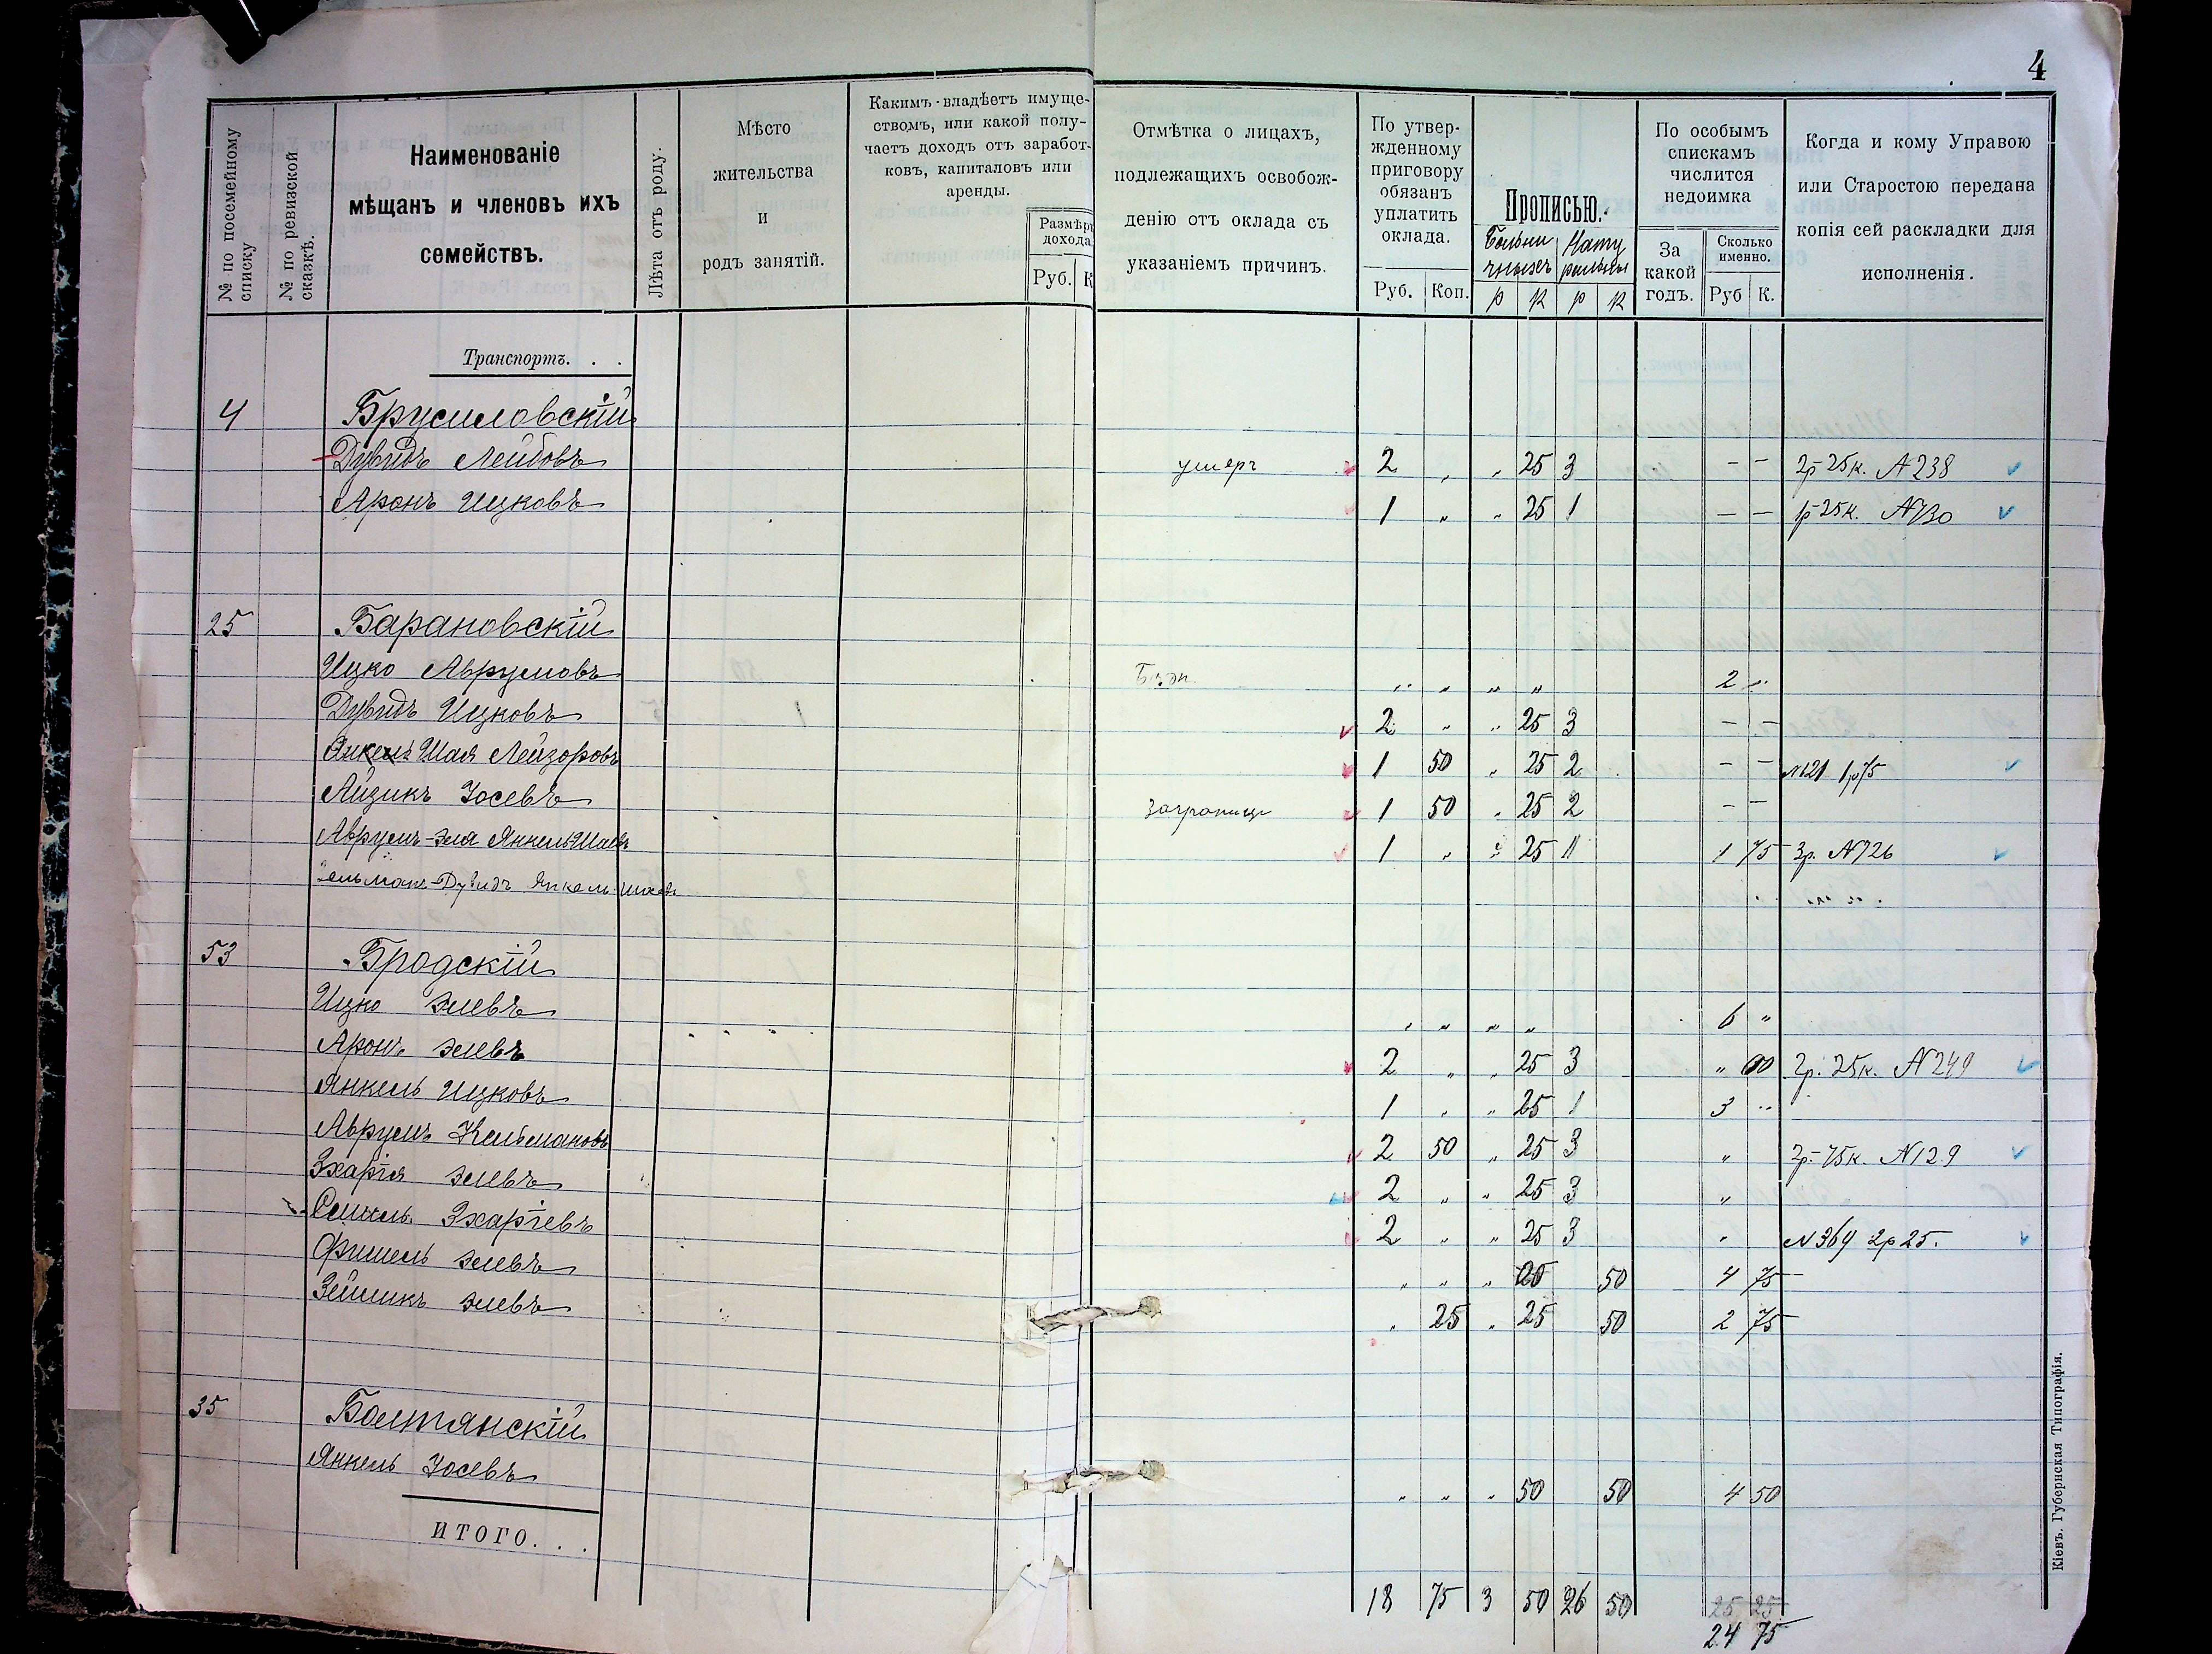 4
№ по посемейному списку
№ по ревизской сказкѣ.
Наименованіе
мѣщанъ и членовъ ихъ
семействъ.
Лѣта отъ роду.
Мѣсто
жительства
и
родъ занятій.
Какимъ владѣетъ имуще-
ствомъ, или какой полу-
чаетъ доходъ отъ заработ-
ковъ, капиталовъ или
аренды.
Размѣръ
дохода
Руб. К
Отмѣтка о лицахъ,
подлежащихъ освобож-
денію отъ оклада съ
указаніемъ причинъ.
По утвер-
жденному
приговору
обязанъ
уплатить
оклада.
Руб. Коп.
Прописью.
Больни
чныхъ
Нату
ральны
р к р к
По особымъ
спискамъ
числится
недоимка
За
какой
годъ.
Сколько
именно.
Руб К.
Когда и кому Управою
или Старостою передана
копія сей раскладки для
исполненія.
Транспортъ. . .
4 Брусиловскій
Дувидъ Лейбовъ умеръ 2 " " 25 3 – – 2р 25к. №238
Аронъ Ицковъ 1 " " 25 1 – – 1р 25к. №730
25 Барановскій
Ицко Аврумовъ " " " " 2 "
Дувидъ Ицковъ 2 " " 25 3 – –
Янкель Шая Лейзоровъ 1 50 " 25 2 – – №121 1р75
Айзикъ Іосевъ заграницу 1 50 " 25 2 – –
Аврумъ-Эля Янкель-Шаевъ 1 " " 25 1 1 75 3р. №726
Дувидъ Янкель-Шаевъ
53 Бродскій
Ицко Элевъ " " " " 6 "
Аронъ Элевъ 2 " " 25 3 " 2р. 25к. №249
Янкель Ицковъ 1 " " 25 1 3 "
Аврумъ Кельмановъ 2 50 " 25 3 " 2р. 75к. №129
Зхарія Элевъ 2 " " 25 3 "
Зхаріевъ 2 " " 25 3 " №369 2р 25.
Фишель Элевъ " " " 50 4 75
Зейликъ Элевъ " 25 " 25 50 2 75
35 Балтянскій
Янкель Іосевъ " " " 50 50 4 50
ИТОГО. . .
18 75 3 50 26 50 25 25
24 75
Кіевъ. Губернская Типографія.